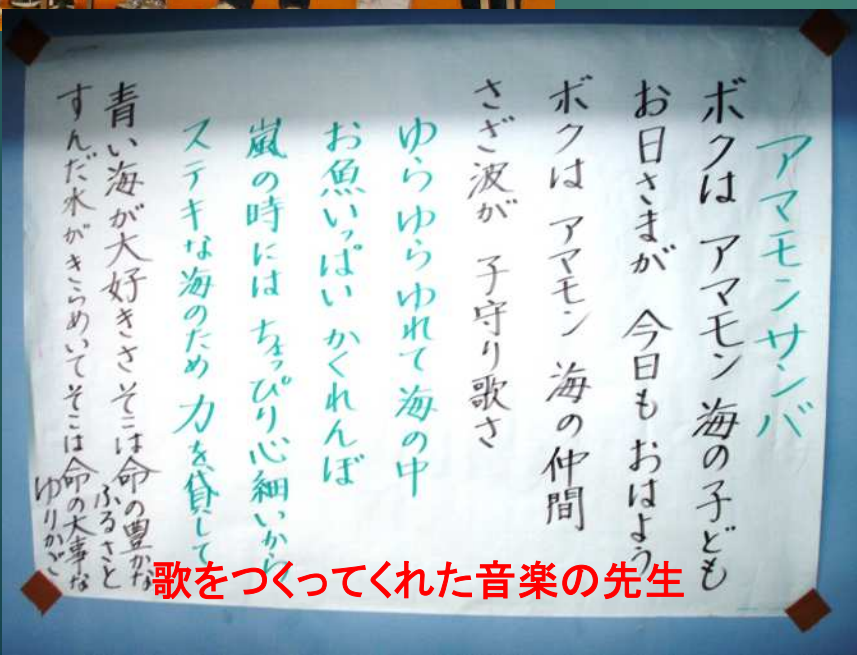 アマモンサンバ
ボクは アマモン 海の子ども
お日さまが 今日も おはよう
ボクは アマモン 海の仲間
さざ波が 子守り歌さ
ゆらゆらゆれて 海の中
お魚いっぱい かくれんぼ
嵐の時には ちょっぴり心細いから
ステキな海のため 力を貸して
青い海が大好きさ そこは命の豊かな
ふるさと
すんだ水がきらめいて そこは命の大事な
ゆりかご
歌をつくってくれた音楽の先生